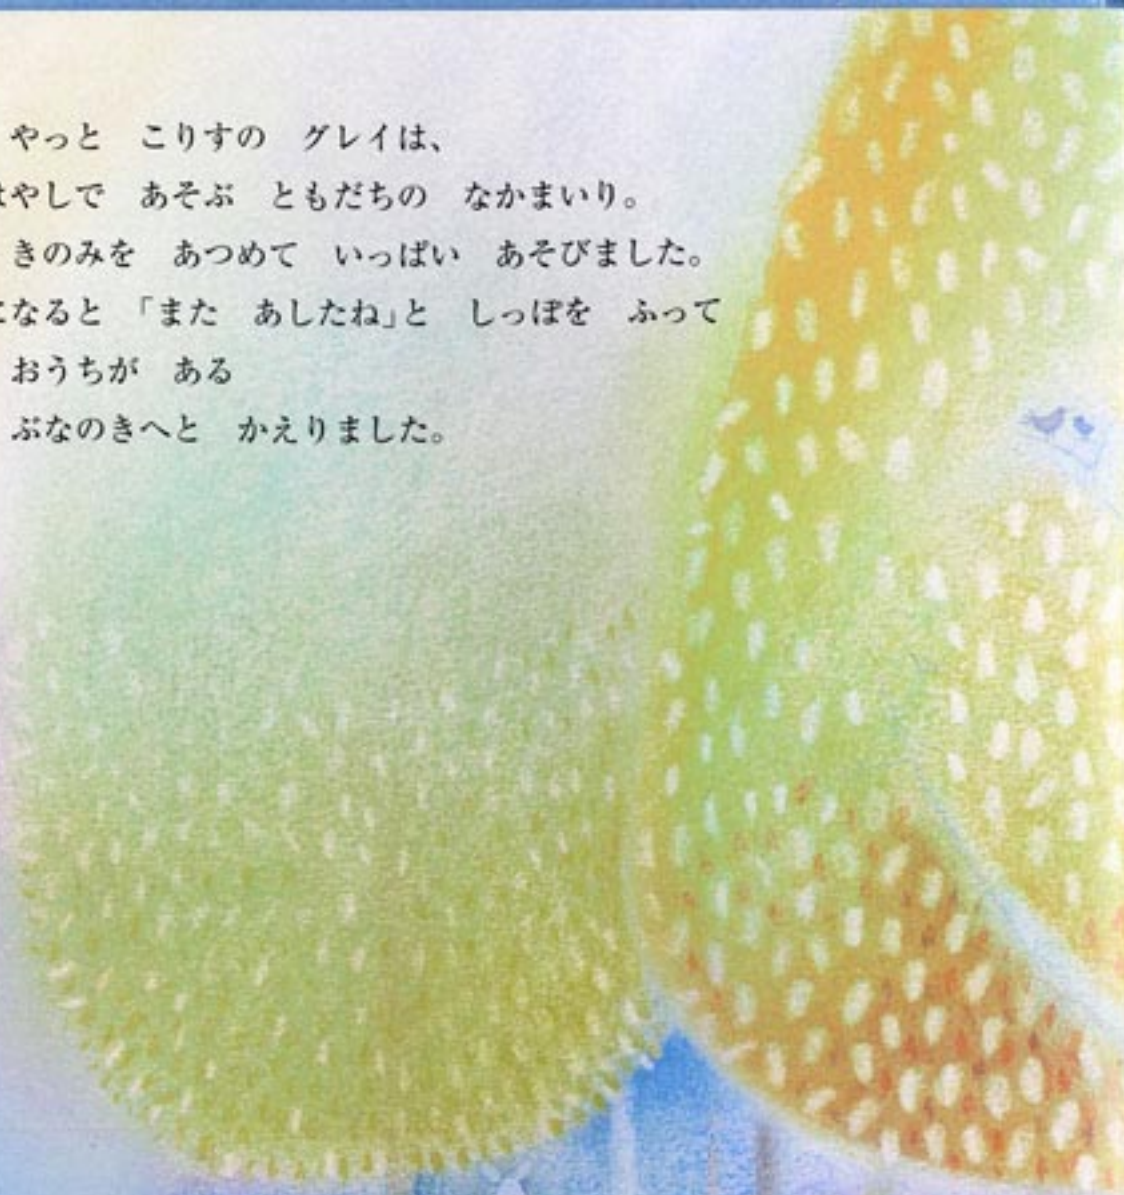 やっと　こりすの　グレイは、
はやしで　あそぶ　ともだちの　なかまいり。
きのみを　あつめて　いっぱい　あそびました。
になると　「また　あしたね」と　しっぽを　ふって
おうちが　ある
ぶなのきへと　かえりました。